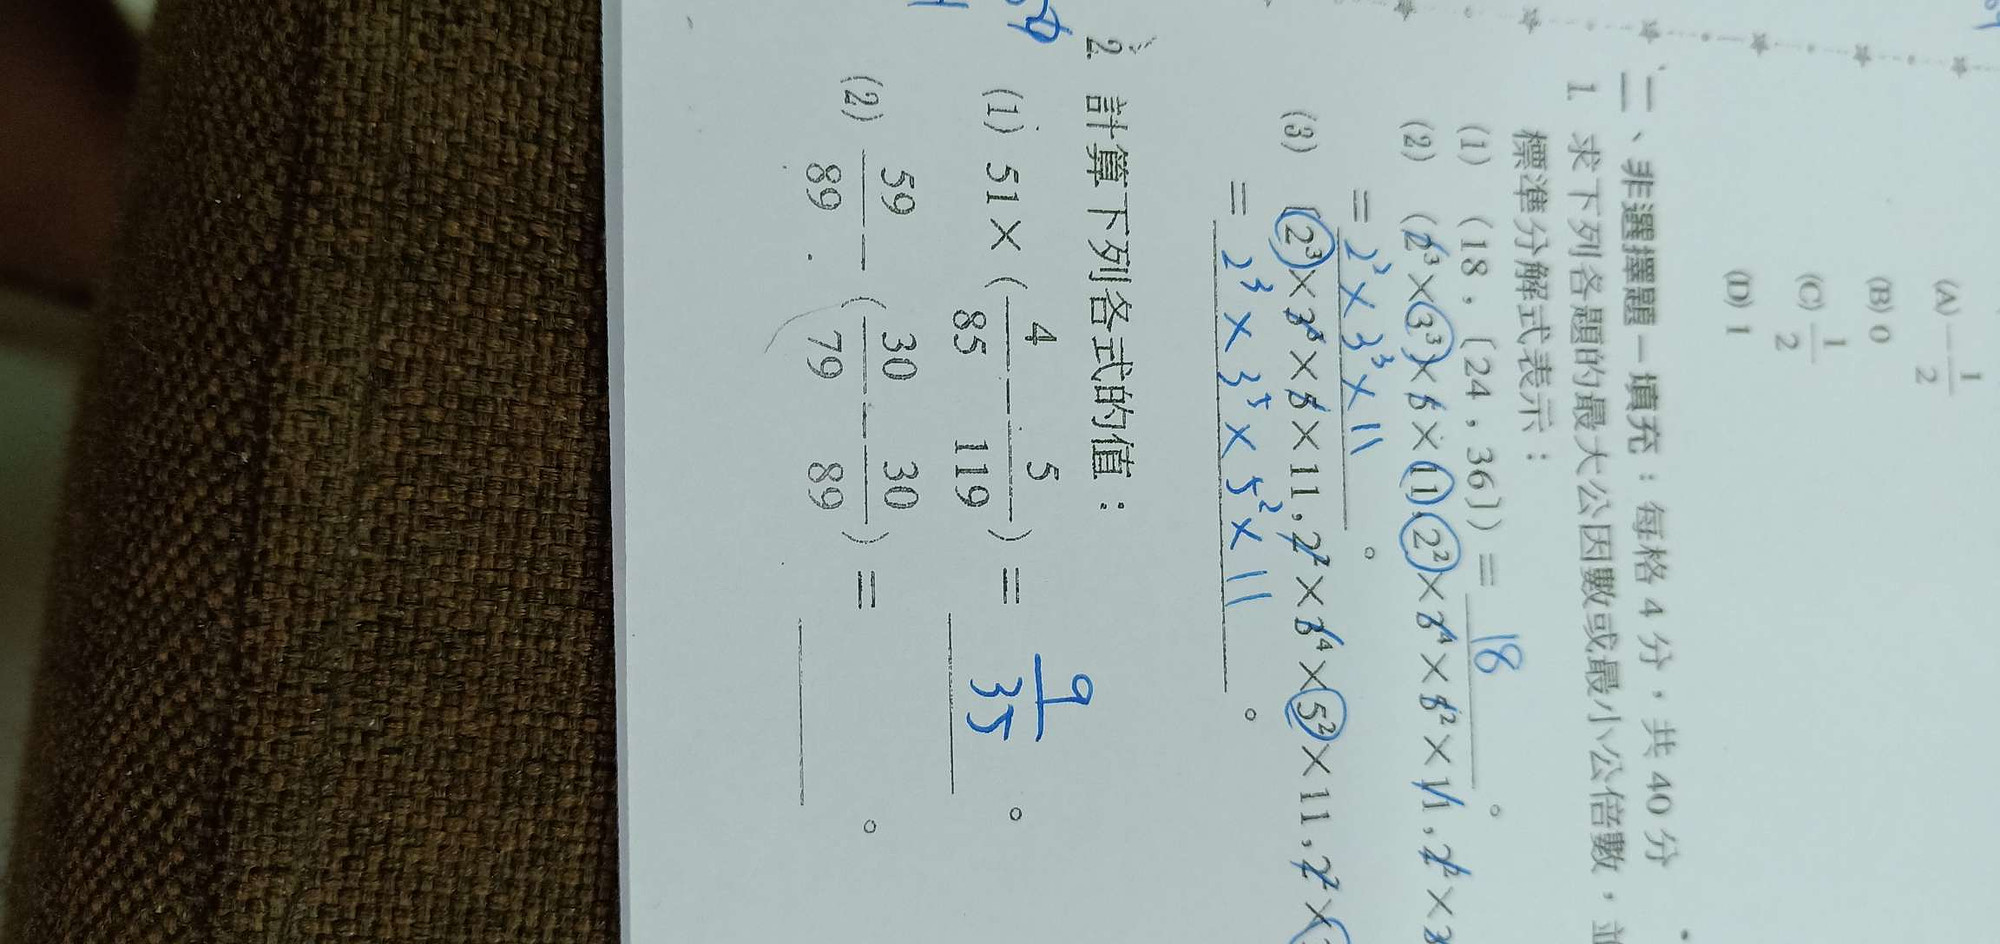 (A) -1/2
(B) 0
(C) 1/2
(D) 1
二、非選擇題－填充：每格 4 分，共 40 分
1. 求下列各題的最大公因數或最小公倍數，並
標準分解式表示：
(1) (18，[24，36]) = 18 。
(2) (2³×3³×5×11, 2²×3⁴×5²×11, 2²×3
= 2²×3³×11 。
(3) [2³×3³×5×11, 2²×3⁴×5²×11, 2²×
= 2³×3⁵×5²×11 。
2. 計算下列各式的值：
(1) 51×(4/85 - 5/119) = 9/35 。
(2) 59/89 - (30/79 - 30/89) = 。